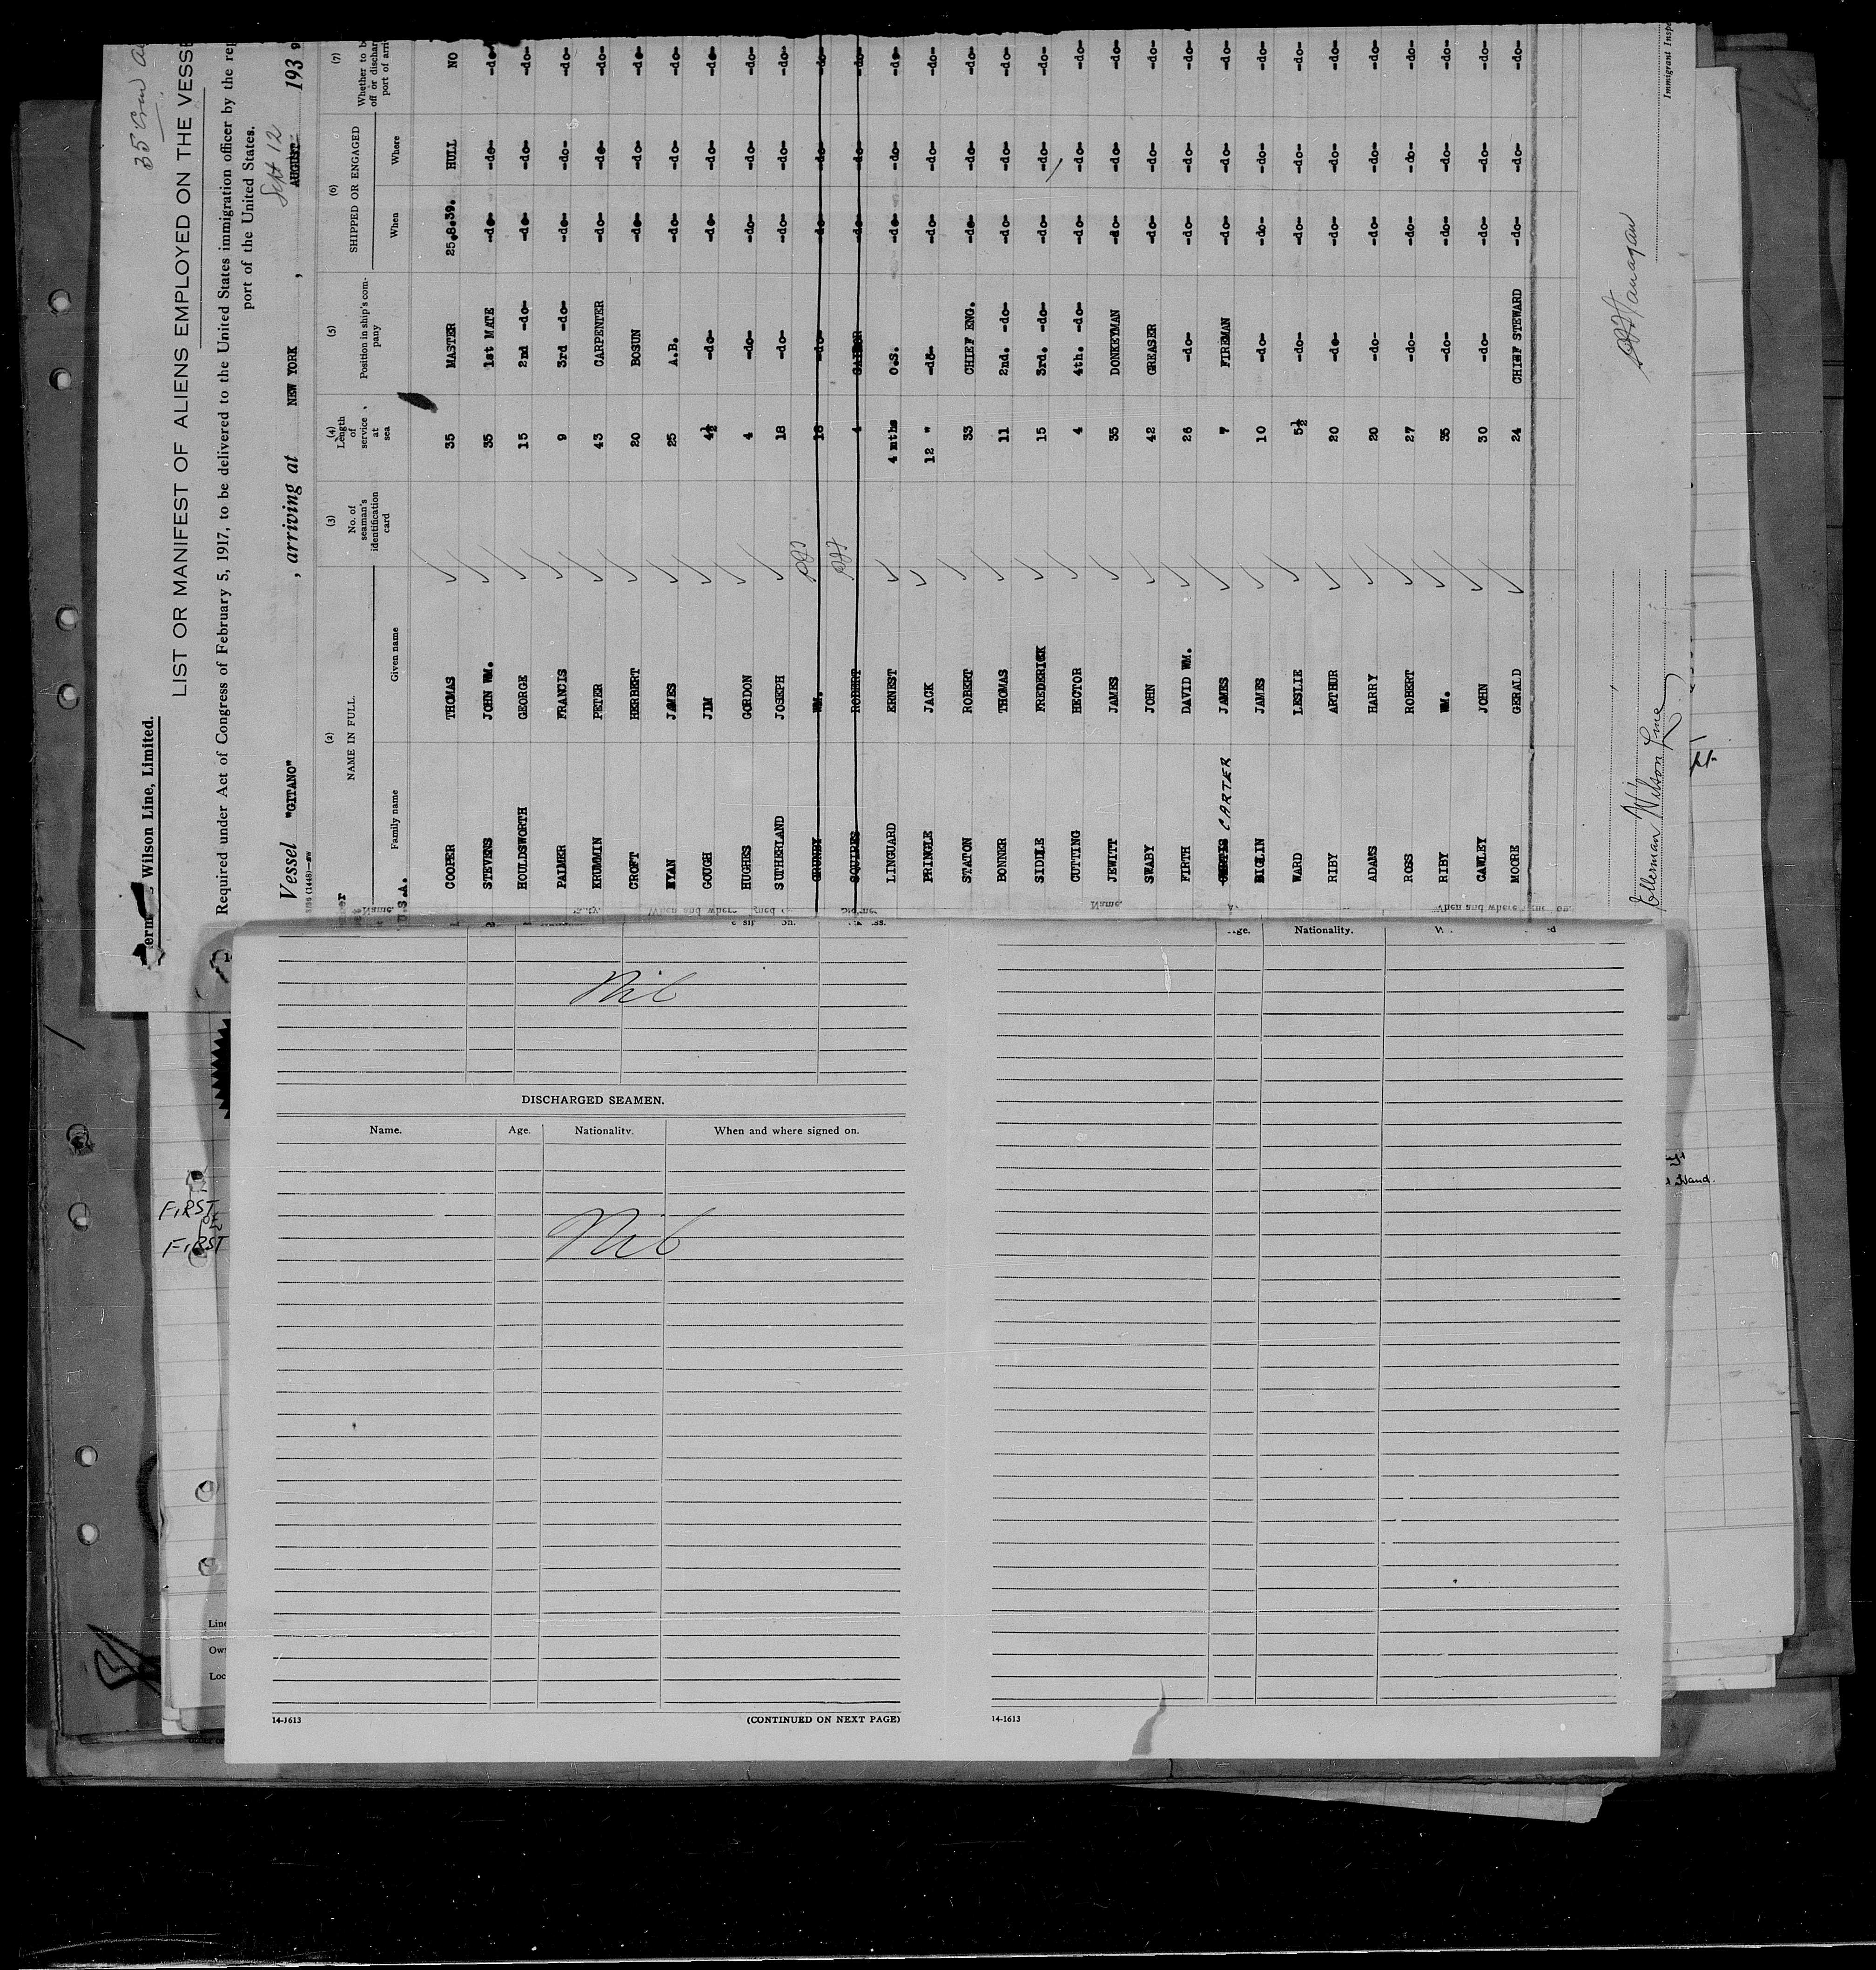 35 Crew
Wilson Line, Limited.
LIST OR MANIFEST OF ALIENS EMPLOYED ON THE VESSE
Required under Act of Congress of February 5, 1917, to be delivered to the United States immigration officer by the rep
port of the United States.
Sept 12
Vessel "GITANO" , arriving at NEW YORK , AUGUST 193 9
(2) (3) (4) (5) (6) (7)
NAME IN FULL No. of seaman's identification card Length of service at sea Position in ship's company SHIPPED OR ENGAGED Whether to b off or dischar port of arri
Family name Given name When Where
U.S.A.
COOPER THOMAS 35 MASTER 25.8.39. HULL NO
STEVENS JOHN WM. 35 1st MATE -do- -do- -do-
HOULDSWORTH GEORGE 15 2nd -do- -do- -do- -do-
PALMER FRANCIS 9 3rd -do- -do- -do- -do-
KRUMMIN PETER 43 CARPENTER -do- -do- -do-
CROFT HERBERT 20 BOSUN -do- -do- -do-
RYAN JAMES 25 A.B. -do- -do- -do-
GOUGH JIM 4½ -do- -do- -do- -do-
HUGHES GORDON 4 -do- -do- -do- -do-
SUTHERLAND JOSEPH 18 -do- -do- -do- -do-
GRUNDY WM. 18 -do- -do- -do- -do-
SQUIRES ROBERT 4 SAILOR -do- -do- -do-
LINGUARD ERNEST 4 mths O.S. -do- -do- -do-
PRINGLE JACK 12 " -do- -do- -do- -do-
STATON ROBERT 33 CHIEF ENG. -do- -do- -do-
BONNER THOMAS 11 2nd. -do- -do- -do- -do-
SIDDLE FREDERICK 15 3rd. -do- -do- -do- -do-
CUTTING HECTOR 4 4th. -do- -do- -do- -do-
JEWITT JAMES 35 DONKEYMAN -do- -do- -do-
SWABY JOHN 42 GREASER -do- -do- -do-
FIRTH DAVID WM. 26 -do- -do- -do- -do-
CARTER JAMES 7 FIREMAN -do- -do- -do-
BIGLIN JAMES 10 -do- -do- -do- -do-
WARD LESLIE 5½ -do- -do- -do- -do-
RIBY ARTHUR 20 -do- -do- -do- -do-
ADAMS HARRY 20 -do- -do- -do- -do-
ROSS ROBERT 27 -do- -do- -do- -do-
RIBY WM. 35 -do- -do- -do- -do-
CAWLEY JOHN 30 -do- -do- -do- -do-
MOORE GERALD 24 CHIEF STEWARD -do- -do- -do-
Ellerman Wilson Line
Immigrant Insp
Nil
DISCHARGED SEAMEN.
Name. Age. Nationality. When and where signed on.
Nil
14-1613 (CONTINUED ON NEXT PAGE)
Nationality.
14-1613
FIRST
OF
FIRST
Line
Own
Loc
Hand.